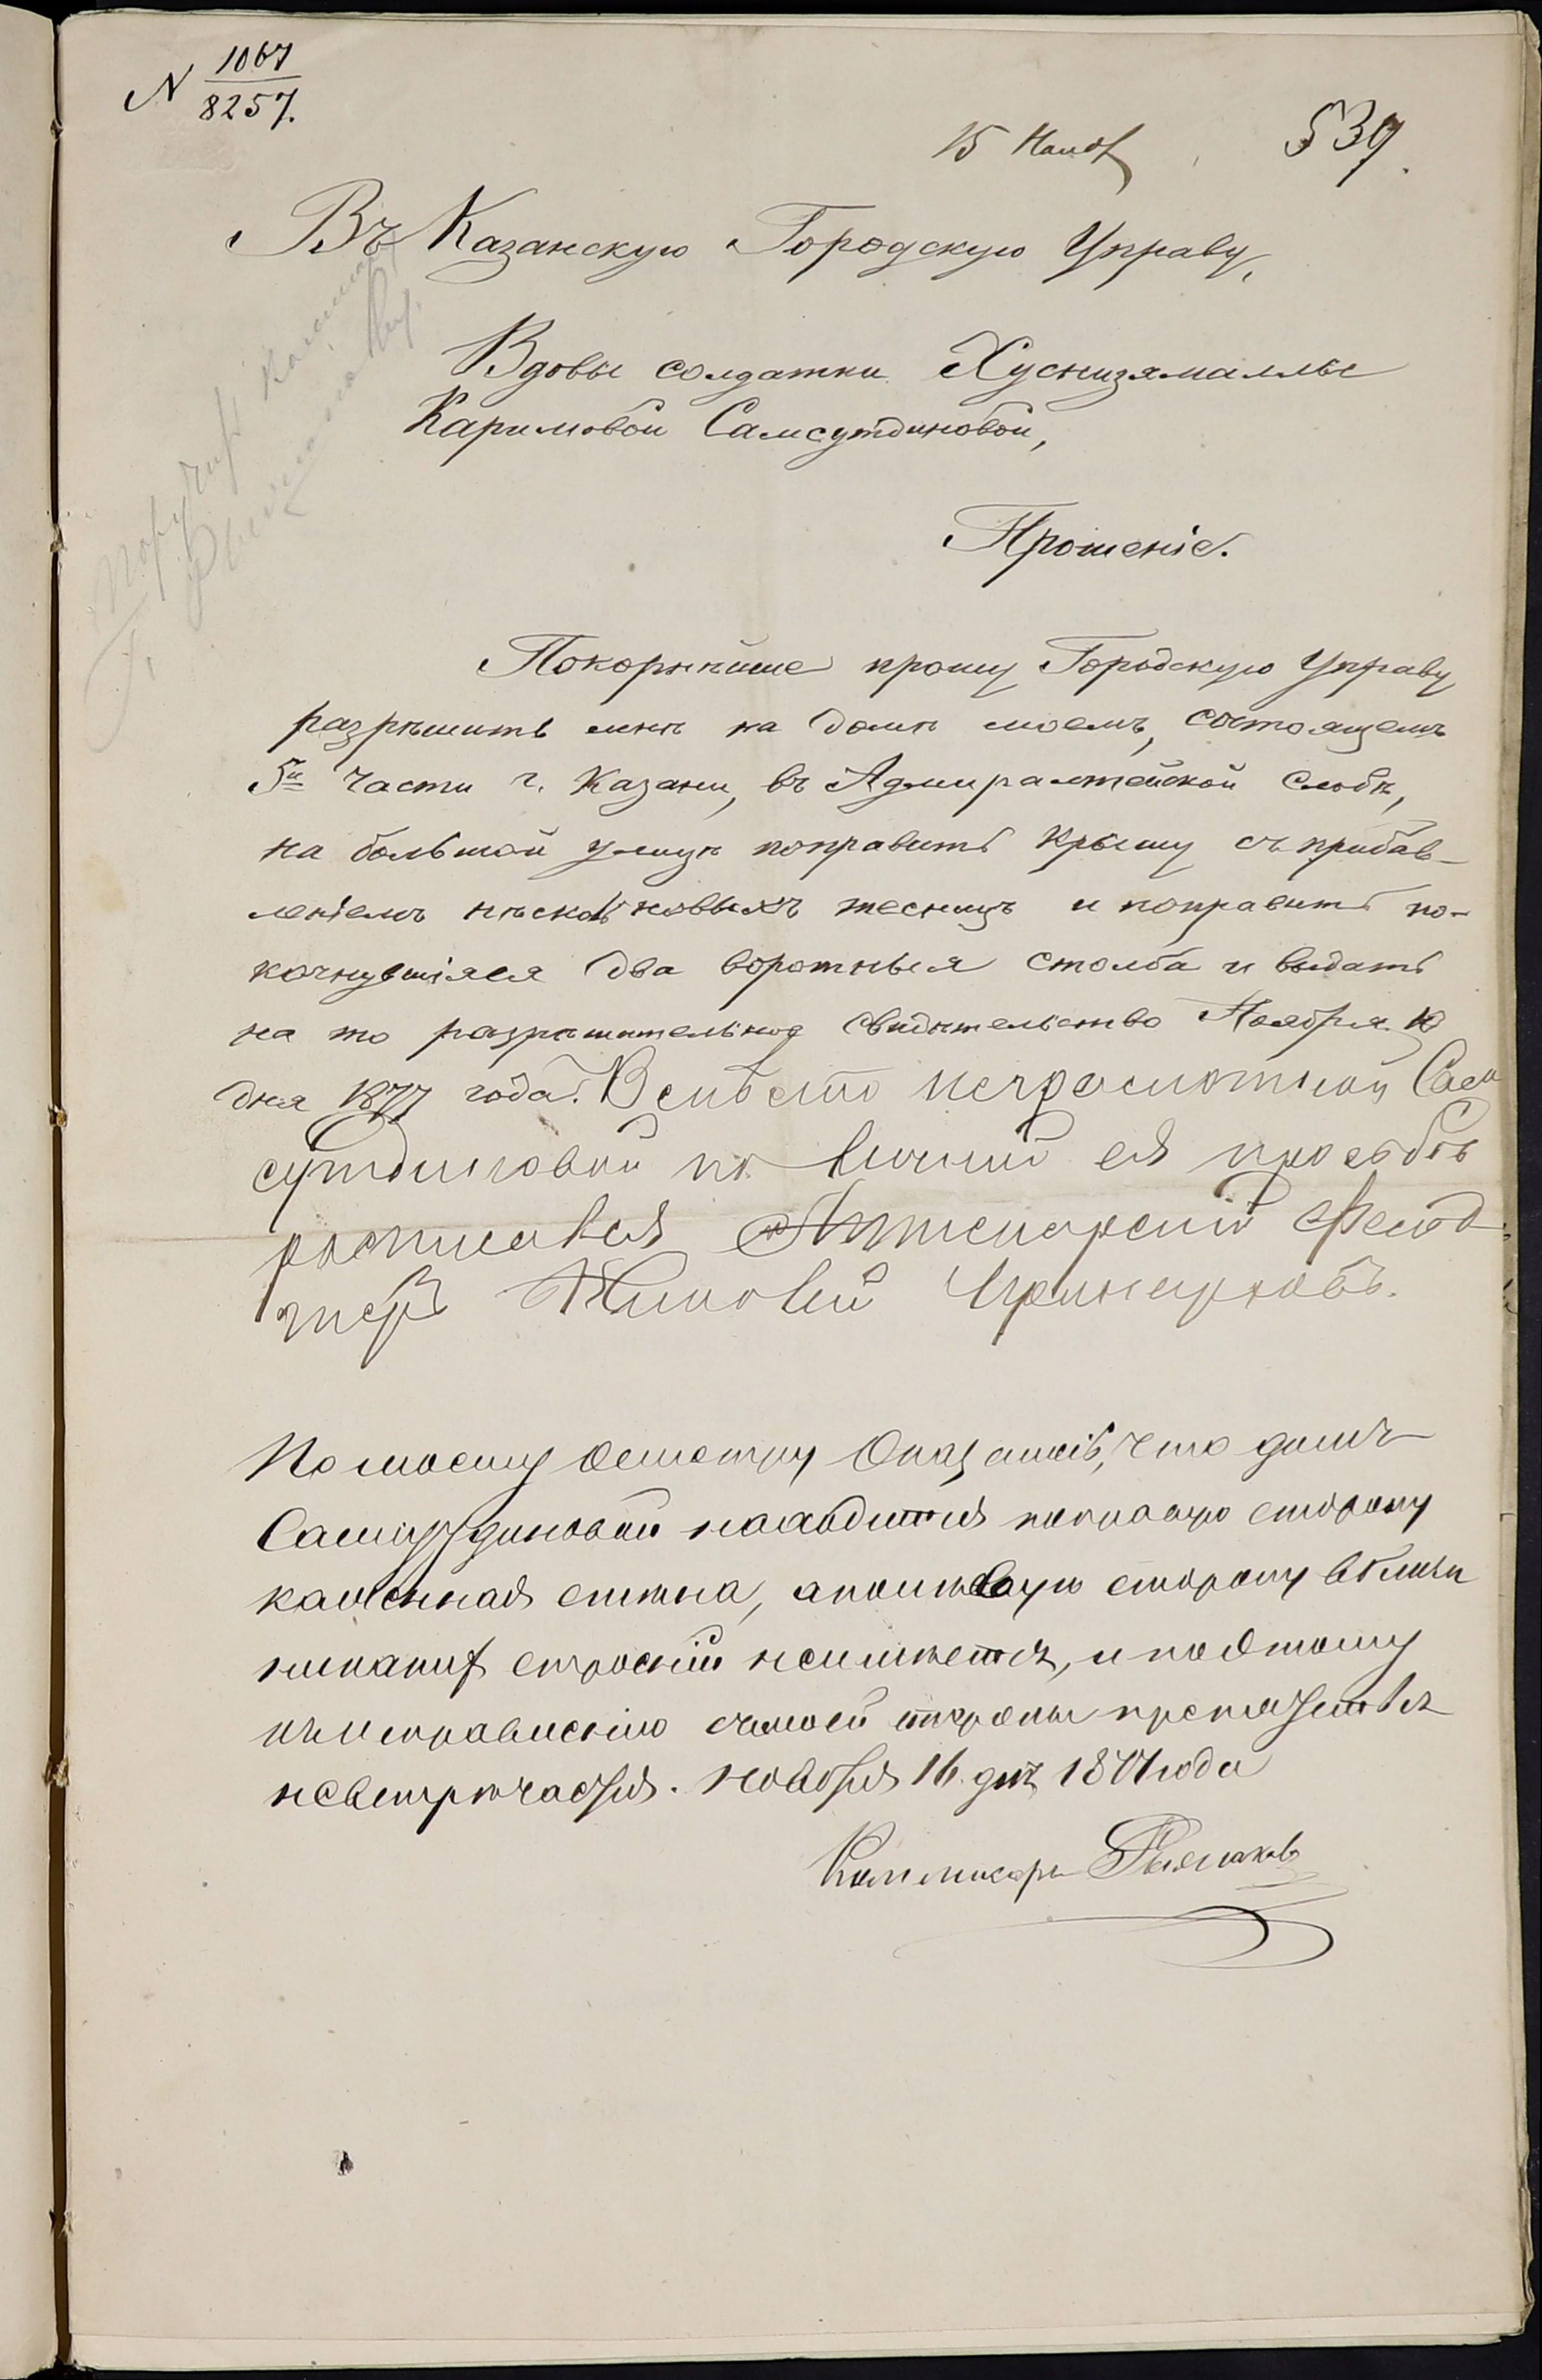 N 1067
8257.
15 Нояб
539.
Въ Казанскую Городскую Управу,
Вдовы солдатки Хуснизямаллы
Каримовой Самсутдиновой,
Прошеніе.
Покорнѣйше прошу Городскую Управу
разрѣшить мнѣ на домѣ моемъ, состоящемъ
5й части г. Казани, въ Адмиралтейской слобѣ,
на большой улицѣ поправить крышу съ прибав-
леніемъ нѣскол новыхъ тесницъ и поправить по-
качнувшіяся два воротныя столба и выдать
на то разрѣшительное свидѣтельство Ноября 10
дня 1877 года. Вмѣсто неграмотной Сам
сутдиновой по личной ея просьбѣ
росписался Аптекарскій Фельд
шеръ
По моему осмотру оказалось, что домъ
Самсутдиновой находится направую сторону
каменная стѣна, а по лѣвую сторону вблизи
никакихъ строеній не имѣется, и поэтому
къ исправленію съ моей стороны препятствія
не встрѣчается. Ноября 16 дня 1877 года
Коммисаръ